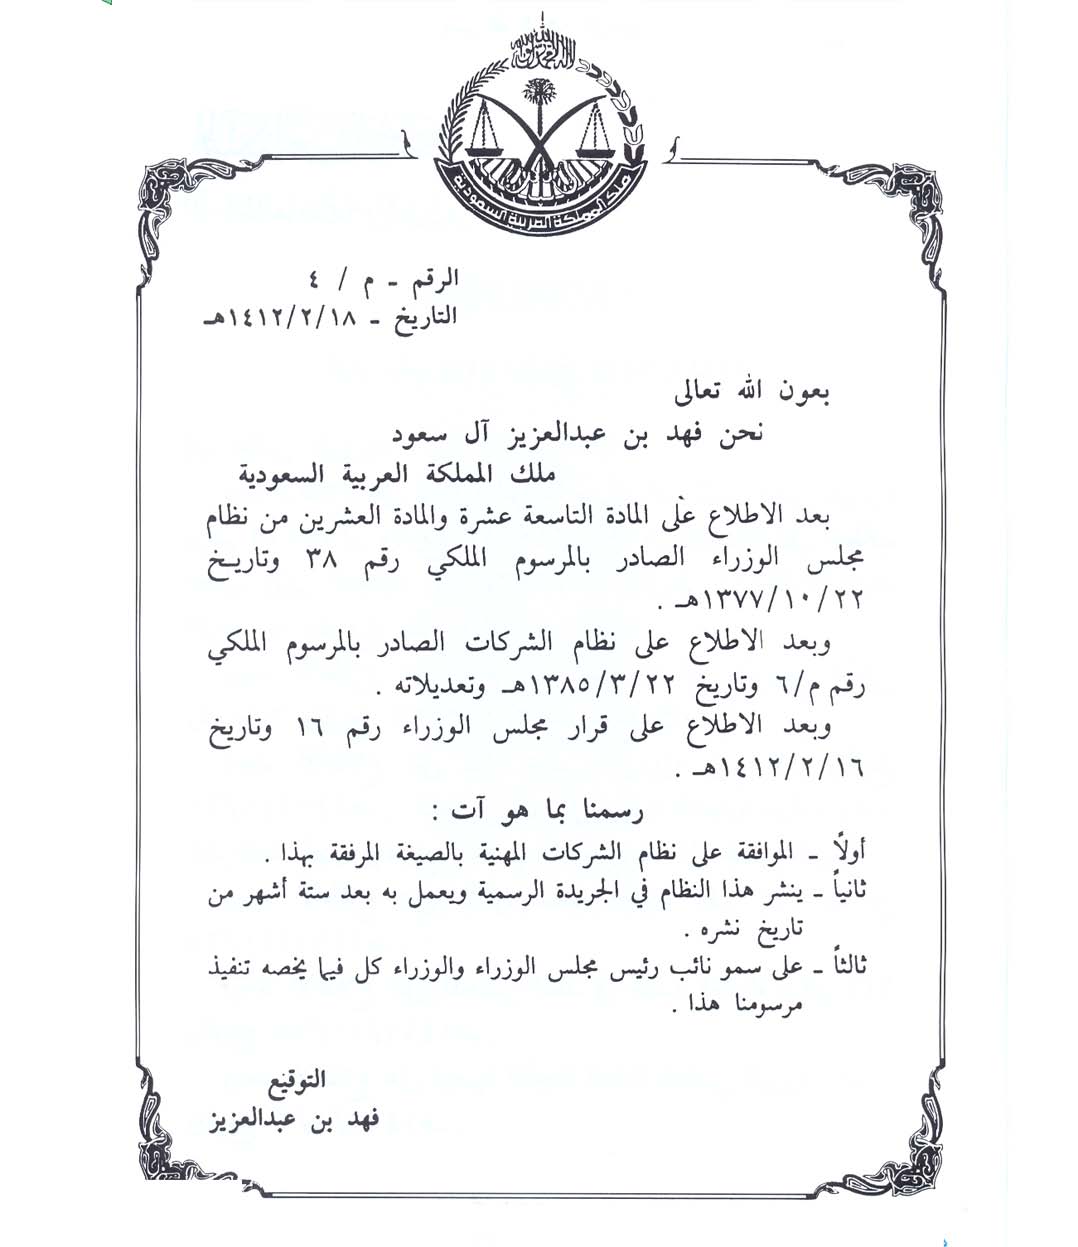 لا إله إلا الله محمد رسول الله
ملك المملكة العربية السعودية
الرقم - م / ٤
التاريخ - ١٤١٢/٢/١٨هـ
بعون الله تعالى
نحن فهد بن عبدالعزيز آل سعود
ملك المملكة العربية السعودية
بعد الاطلاع على المادة التاسعة عشرة والمادة العشرين من نظام
مجلس الوزراء الصادر بالمرسوم الملكي رقم ٣٨ وتاريخ
١٣٧٧/١٠/٢٢هـ .
وبعد الاطلاع على نظام الشركات الصادر بالمرسوم الملكي
رقم م/٦ وتاريخ ١٣٨٥/٣/٢٢هـ وتعديلاته .
وبعد الاطلاع على قرار مجلس الوزراء رقم ١٦ وتاريخ
١٤١٢/٢/١٦هـ .
رسمنا بما هو آت :
أولاً - الموافقة على نظام الشركات المهنية بالصيغة المرفقة بهذا .
ثانياً - ينشر هذا النظام في الجريدة الرسمية ويعمل به بعد ستة أشهر من
تاريخ نشره .
ثالثاً - على سمو نائب رئيس مجلس الوزراء والوزراء كل فيما يخصه تنفيذ
مرسومنا هذا .
التوقيع
فهد بن عبدالعزيز